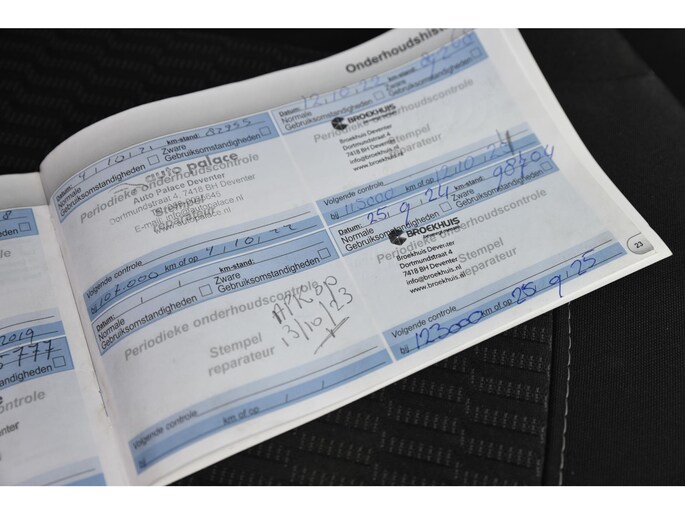 Onderhoudshis
Datum: 4,10,21 km-stand: 82955
Normale Zware
Gebruiksomstandigheden Gebruiksomstandigheden
Periodieke onderhoudscontrole
auto palace
Auto Palace Deventer
Dortmundstraat 4, 7418 BH Deventer
Stempel
reparateur
Volgende controle
bij km of op 4,10,22
Datum: 12,10,22 km-stand:
Normale Zware
Gebruiksomstandigheden Gebruiksomstandigheden
Periodieke onderhoudscontrole
BROEKHUIS
Broekhuis Deventer
Dortmundstraat 4
7418 BH Deventer
info@broekhuis.nl
www.broekhuis.nl
Stempel
reparateur
Volgende controle
bij 115000 km of op 12,10,24
Datum: / / km-stand:
Normale Zware
Gebruiksomstandigheden Gebruiksomstandigheden
Periodieke onderhoudscontrole
Stempel
reparateur
13/10/23
Volgende controle
bij km of op / /
Datum: 25,9,24 km-stand: 98304
Normale Zware
Gebruiksomstandigheden Gebruiksomstandigheden
Periodieke onderhoudscontrole
BROEKHUIS
Broekhuis Deventer
Dortmundstraat 4
7418 BH Deventer
info@broekhuis.nl
www.broekhuis.nl
Stempel
reparateur
Volgende controle
bij 123000 km of op 25,9,25
23
2019
777
standigheden
controle